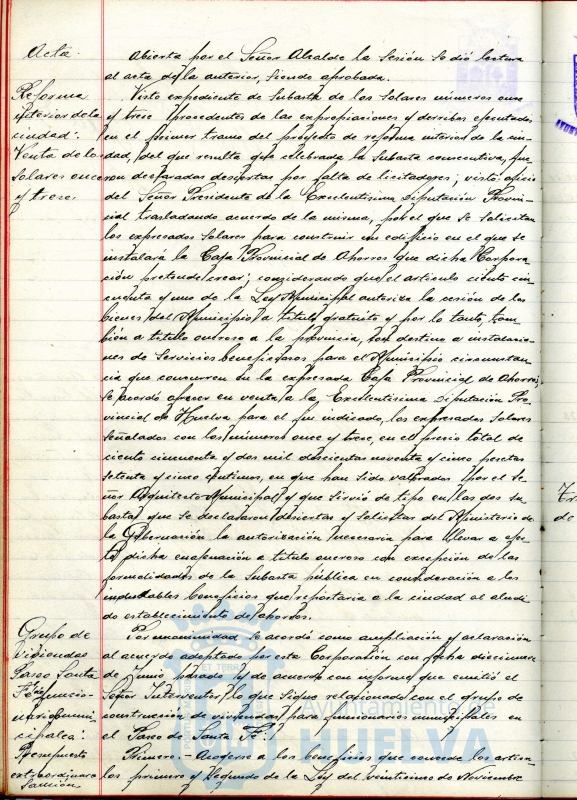 Acta:
Abierta por el Señor Alcalde la Sesión se dió lectura
al acta de la anterior, siendo aprobada.
Reforma
interior de la
ciudad:
Venta de los
Solares once
y trece.
Visto expediente de Subasta de los Solares números once
y trece procedentes de las expropiaciones y derribos efectuados
en el primer tramo del proyecto de reforma interior de la ciu-
dad, del que resulta que celebrada la subasta consecutiva, fue-
ron declaradas desiertas por falta de licitadores; visto oficio
del Señor Presidente de la Excelentísima Diputación Provin-
cial trasladando acuerdo de la misma, por el que se solicitan
los expresados solares para construir un edificio en el que se
instalará la Caja Provincial de Ahorros que dicha Corpora-
ción pretende crear; considerando que el artículo ciento cin-
cuenta y uno de la Ley Municipal autoriza la cesión de los
bienes del Municipio a título gratuito y por lo tanto, tam-
bién a título oneroso a la provincia, con destino a instalacio-
nes de Servicios beneficiosos para el Municipio circunstan-
cia que concurren en la expresada Caja Provincial de Ahorros,
se acordó ofrecer en venta a la Excelentísima Diputación Pro-
vincial de Huelva para el fin indicado, los expresados solares
señalados con los números once y trece, en el precio total de
ciento cincuenta y dos mil doscientas noventa y cinco pesetas
setenta y cinco céntimos, en que han sido valorados por el Se-
ñor Arquitecto Municipal y que sirvió de tipo en las dos su-
bastas que se declararon desiertas y solicitar del Ministerio de
la Gobernación la autorización necesaria para llevar a efec-
to dicha enagenación a título oneroso con excepción de las
formalidades de la Subasta pública en consideración a los
indudables beneficios que reportaria a la ciudad el aludi-
do establecimiento de ahorros.
Grupo de
Viviendas
Paseo Santa
Fé funcio-
narios muni-
cipales:
Presupuesto
extraordinario
Sanción
Por unanimidad se acordó como ampliación y aclaración
al acuerdo adoptado por esta Corporación con fecha diecinueve
de Junio pasado y de acuerdo con informe que emitió el
Señor Interventor, lo que sigue relacionado con el grupo de
construcción de viviendas para funcionarios municipales en
el Paseo de Santa Fé:
Primero.- Acogerse a los beneficios que concede los artícu-
los primero y segundo de la Ley del veinticinco de Noviembre
Ayuntamiento de
HUELVA